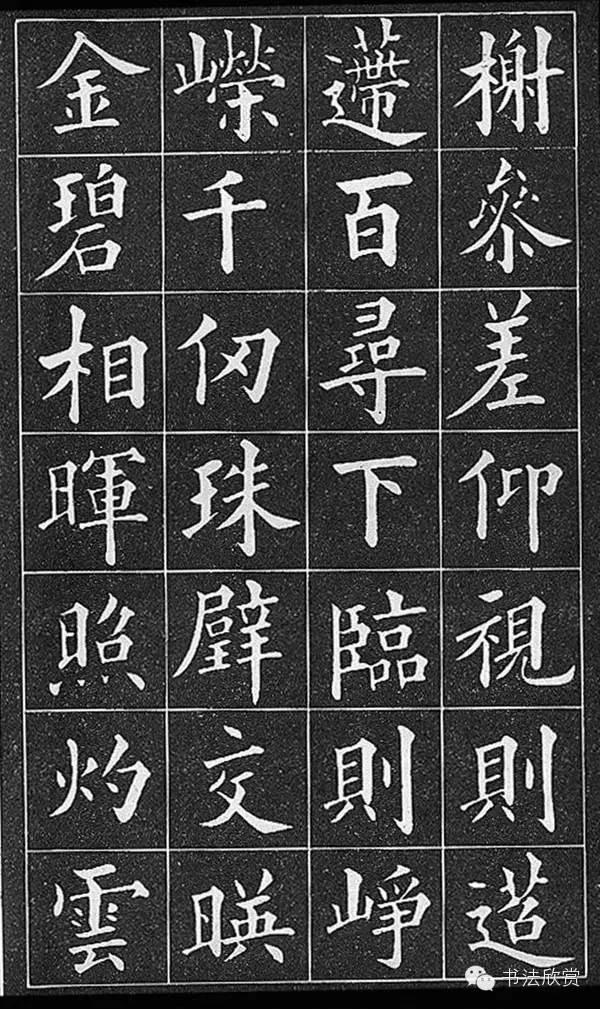 榭參差仰視則迢
遰百尋下臨則崢
嶸千仞珠壁交暎
金碧相暉照灼雲
书法欣赏